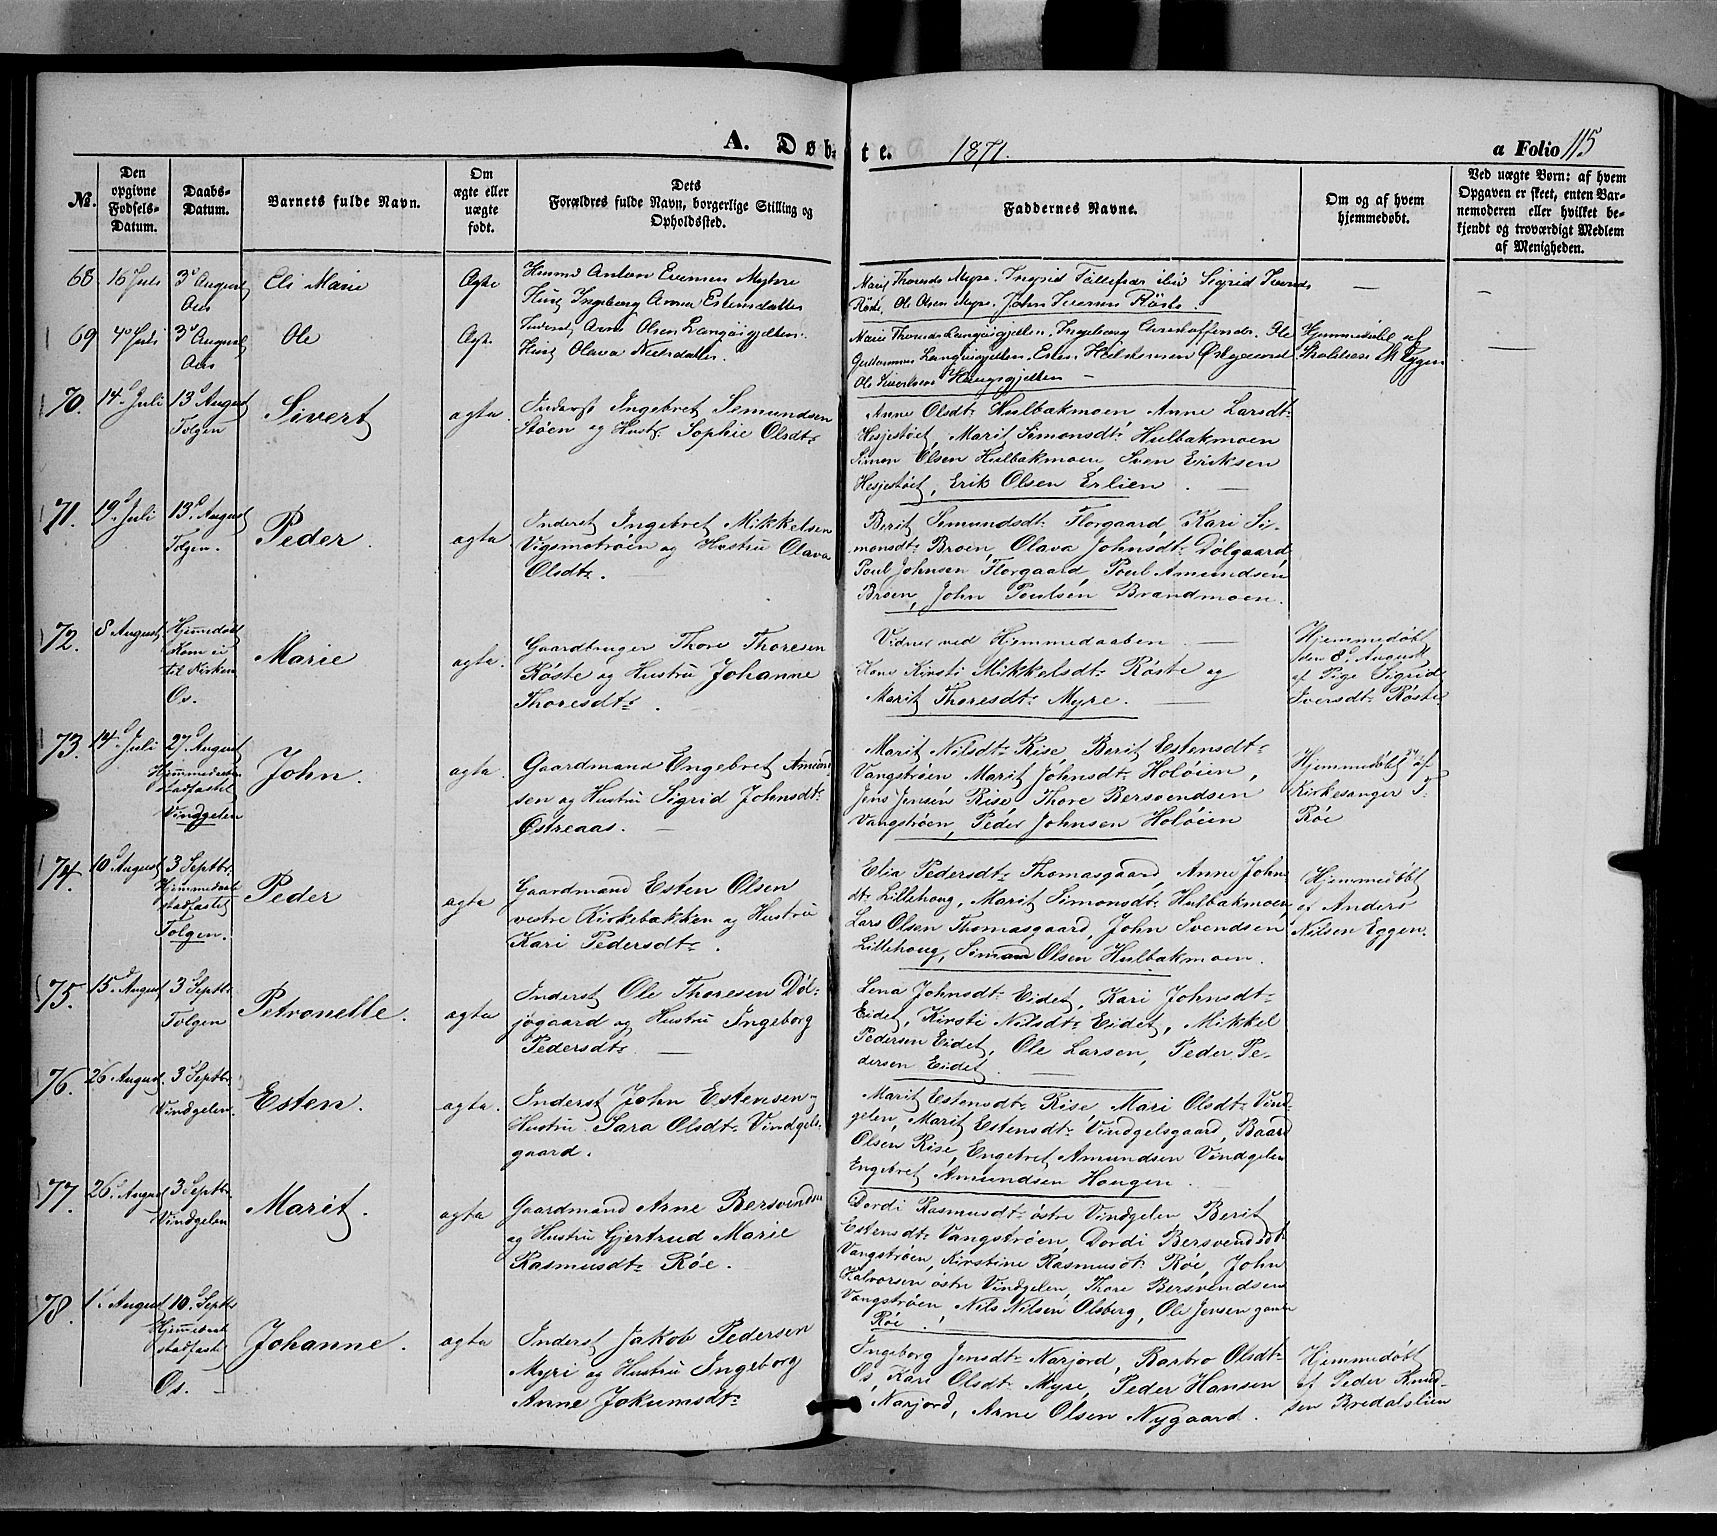 A. Døb-
te. 1871.
a Folio 115
No.
Den opgivne Fødsels-Datum.
Daabs-Datum.
Barnets fulde Navn.
Om ægte eller uægte født.
Dets Forældres fulde Navn, borgerlige Stilling og Opholdssted.
Faddernes Navne.
Om og af hvem hjemmedøbt.
Ved uægte Børn: af hvem Opgaven er skeet, enten Barnemoderen eller hvilket bekjendt og troværdigt Medlem af Menigheden.
68 16 Juli 3 August Aas
Marie
Ægte
Anton Evensen
Hust Ingeborg Anna Estensdatter
Marit Thoresd Myre. Ingrid Sigrid Iversd
Røste, Ol. Olsen Myre. John Iversen Røste
69 4 Juli 3 August Aas
Ole
Ægte
Inderst Arne Olsen Langøigjelten
Hust Olava Nilsdatter
Marie Thoresd Langøigjelten, Ingeborg Ole
Langøigjelten, Esten Halstensen Østgaard
Ole Haugsgjelten
Hjemmedøbt af
Eggen
70. 14 Juli 13 August Tolgen
Sivert
ægta.
Inderst Ingebret Semundsen
Støen og Hust. Sophie Olsdtr
Anne Olsdtr Hulbakmoen Anne Larsdtr
Hesjestøet, Marit Simonsdtr Hulbakmoen
Simon Olsen Hulbakmoen, Sven Eriksen
Hesjestøet, Erik Olsen Erlien.
71. 19. Juli 13. August Tolgen.
Peder.
ægta
Inderst Ingebret Mikkelsen
Vigsmotrøen og Hustru Olava
Olsdtr.
Berit Semundsdtr Florgaard, Kari Si-
monsdtr Broen, Olava Johnsdtr Dølgaard,
Poul Johnsen Florgaard, Poul Amundsen
Broen, John Poulsen Brandmoen.
72. 8 August Hjemmedøbt Kom ei til Kirken Os.
Marie
ægta.
Gaardbruger Thore Thoresen
Røste og Hustru Johanne
Thoresdtr.
Vidner ved Hjemmedaaben
Kone Kirsti Mikkelsdtr Røste og
Marit Thoresdtr Myre.
Hjemmedøbt
den 8d August
af Pige Sigrid
Iversdtr Røste
73. 14. Juli 27. August Hjemmedaaben stadfæstet Vindgelen
John.
ægta.
Gaardmand Engebret Amun-
sen og Hustru Sigrid Johnsdtr
Østreaas.
Marit Nilsdtr Rise Berit Estensdtr
Vangstrøen Marit Johnsdtr Holøien,
Jens Jensen Rise Thore Bersvendsen
Vangstrøen, Peder Johnsen Holøien
Hjemmedøbt af
Kirkesanger T.
Røe
74. 10 August 3 Septbr. Hjemmedaab stadfæstet Tolgen.
Peder
ægta
Gaardmand Esten Olsen
vestre Kirkebakken og Hustru
Kari Pedersdtr.
Elia Pedersdtr Thomasgaard, Anne John-
dtr Lillehoug, Marit Simonsdtr Hulbakmoen,
Lars Olsen Thomasgaard, John Svendsen
Lillehoug, Simon Olsen Hulbakmoen.
Hjemmedøbt
af Anders
Nilsen Eggen.
75. 15. August 3 Septbr. Tolgen
Petronelle.
ægta
Inderst Ole Thoresen Døl-
jøgaard og Hustru Ingeborg
Pedersdtr
Lena Johnsdtr Eidet, Kari Johnsdtr
Eidet, Kirsti Nilsdtr Eidet, Mikkel
Pedersen Eidet, Ole Larsen, Peder Pe-
dersen Eidet.
76. 26 August. 3 Septbr. Vindgelen.
Esten.
ægta.
Inderst John Estensen og
Hustru Sara Olsdtr Vindgels-
gaard.
Marit Estensdtr Rise, Mari Olsdtr Vind-
gelen, Marit Estensdtr Vindgelsgaard, Baard
Olsen Rise, Engebret Amundsen Vindgelen
Engebret Amundsen Hougen.
77. 26. August 3 Septbr. Vindgelen
Marit.
ægta
Gaardmand Arne Bersvendsen
og Hustru Gjertrud Marie
Rasmusdtr Røe.
Dordi Rasmusdtr østre Vindgelen Berit
Estensdtr Vangstrøen, Dordi Bersvendsdtr
Vangstrøen, Kirstine Rasmusdtr Røe, John
Halvorsen østre Vindgelen, Thore Bersvendsen
Vangstrøen, Nils Nilsen Olsberg, Ole Jensen
Røe
78. 1 August 10 Septbr Hjemmedaab stadfæstet Os.
Johanne.
ægta
Inderst Jakob Pedersen
Myri og Hustru Ingeborg
Anne Jokumsdtr
Ingeborg Jensdtr Narjord, Barbro Olsdtr
Os, Kari Olsdtr Myre, Peder Hansen
Narjord, Arne Olsen Nygaard.
Hjemmedøbt
af Peder Knud-
sen Bredalslien